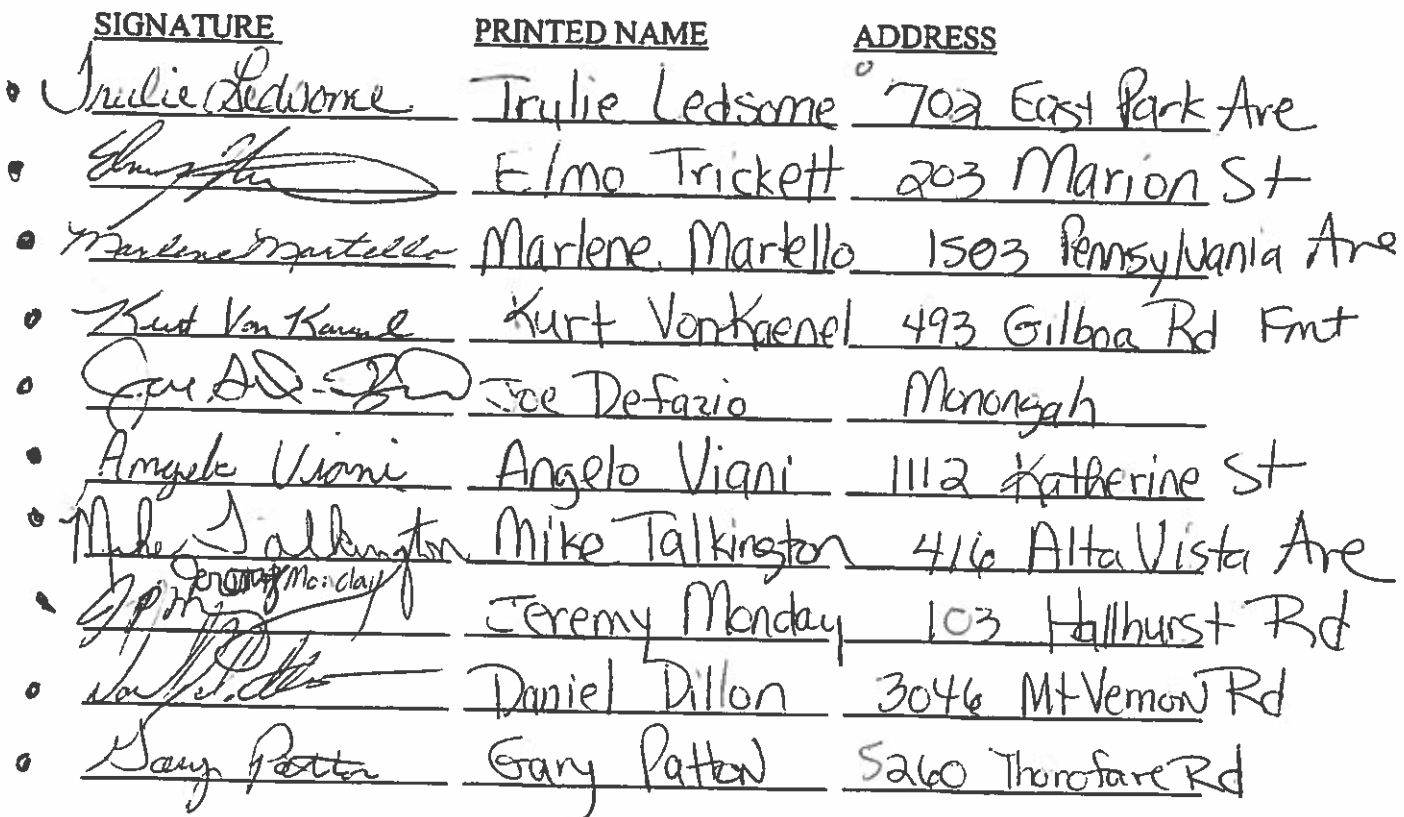 SIGNATURE PRINTED NAME ADDRESS
Trulie Ledsome Trylie Ledsome 702 East Park Ave
Elmo Trickett 203 Marion St
Marlene Martello Marlene Martello 1503 Pennsylvania Ave
Kurt Von Kaenel Kurt VonKaenel 493 Gilboa Rd Fmt
Joe Defazio Monongah
Angelo Viani Angelo Viani 1112 Katherine St
Mike Talkington Mike Talkington 416 Alta Vista Ave
Jeremy Monday Jeremy Monday 103 Hallhurst Rd
Daniel Dillon 3046 Mt Vernon Rd
Gary Patton Gary Patton 5260 Thorofare Rd